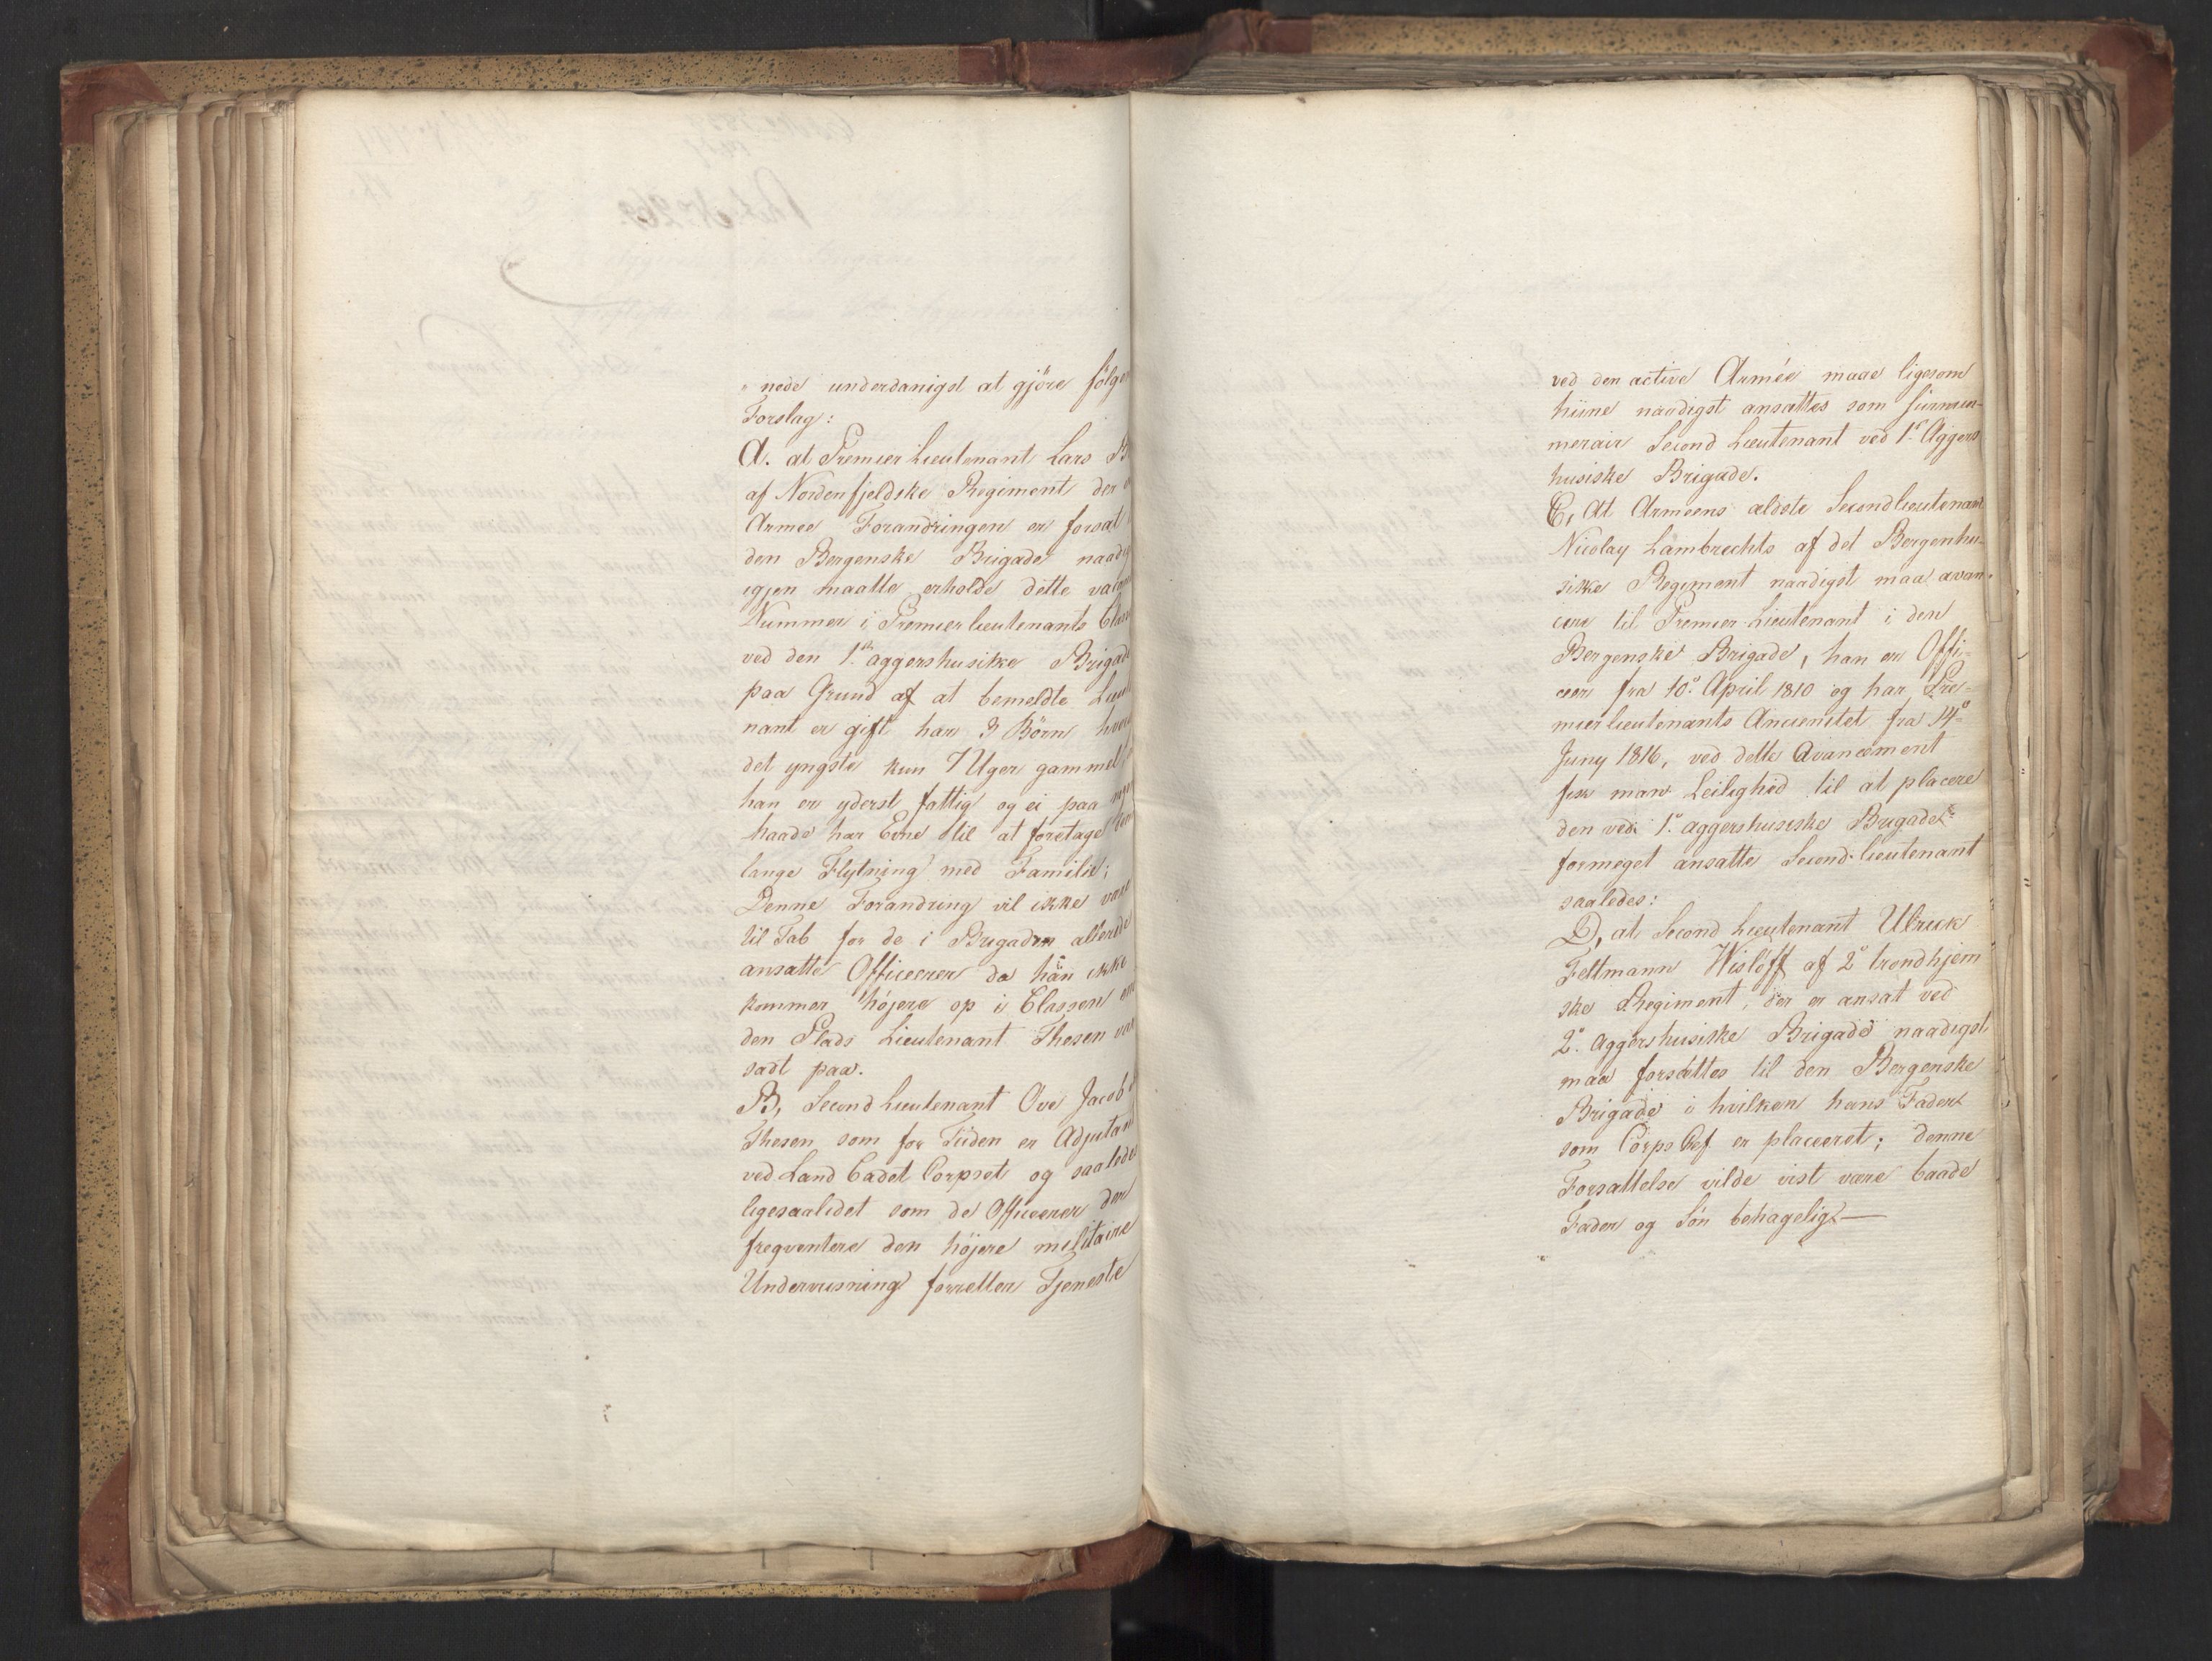 nede underdanigst at gjöre fölge
Forslag:
A. at Premier Lieutenant Lars B
af Nordenfjeldske Regiment der
Armee Forandringen er forsat
den Bergenske Brigade naadi
igjen maatte erholde dette va
Nummer i Premierlieutenants Clas
ved den 1ste aggershusiske Brigad
paa Grund af at bemeldte Lieu
nant er gift har 3 Börn hvo
det yngste kun 7 Uger gammel
han er yderst fattig og ei paa
haade har Evne til at foretage den
lange Flytning med Familie;
Denne Forandring vil ikke være
til Tab for de i Brigaden allerede
ansatte Officerer da han ikke
kommer höjere op i Classen en
den Plads Lieutenant Thesen var
sadt paa.
B, Second Lieutenant Ove Jacob
Thesen som for Tiden er Adjutan
ved Land Cadet Corpset og saaledes
ligesaalidet som de Officerer der
freqventere den höjere militaire
Underviisning forretter Tjeneste
ved den active Armée maae ligesom
hiine naadigst ansættes som surnum-
merair Second Lieutenant ved 1e Aggers
husiske Brigade.
C, At Armeens ældste Secondlieutenant
Nicolay Lambrechts af det Bergenhu-
siske Regiment naadigst maa avan-
cere til Premier-Lieutenant i den
Bergenske Brigade, han er Offi-
ceer fra 10e April 1810 og har Pre-
mierlieutenants Ancienitet fra 14e
Juny 1816, ved dette Avancement
fik man Leilighed til at placere
den ved 1e aggershusiske Brigade
formeget ansatte Second-lieutenant
saaledes:
D, at Second Lieutenant Ulrick
Feltmann Wislöff af 2e trondhjem
ske Regiment, der er ansat ved
2e aggershusiske Brigade naadigst
maa forsættes til den Bergenske
Brigade i hvilken hans Fader
som Corps Chef er placeeret; denne
Forsættelse vilde vist være baade
Fader og Sön behageligt—